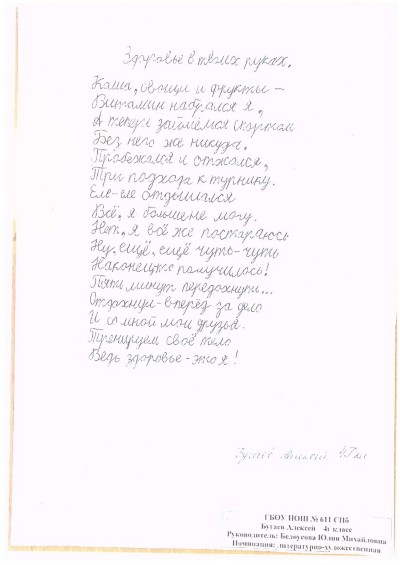 Здоровье в твоих руках.
Каша, овощи и фрукты –
Витамин набрался я,
А теперь займёмся спортом
Без него же никуда.
Пробежался и отжался,
Три подхода к турнику.
Еле-еле отдышался
Всё, я больше не могу.
Нет, я всё же постараюсь
Ну, ещё, ещё чуть-чуть
Наконец-то получилось!
Пять минут передохнуть...
Отдохнул-вперёд за дело
И со мной мои друзья.
Тренируем своё тело
Ведь здоровье-это я!
Бугаёв Алексей
ГБОУ НОШ № 611 СПб
Бугаев Алексей 4 класс
Руководитель: Белоусова Юлия Михайловна
Номинация: литературно-художественная